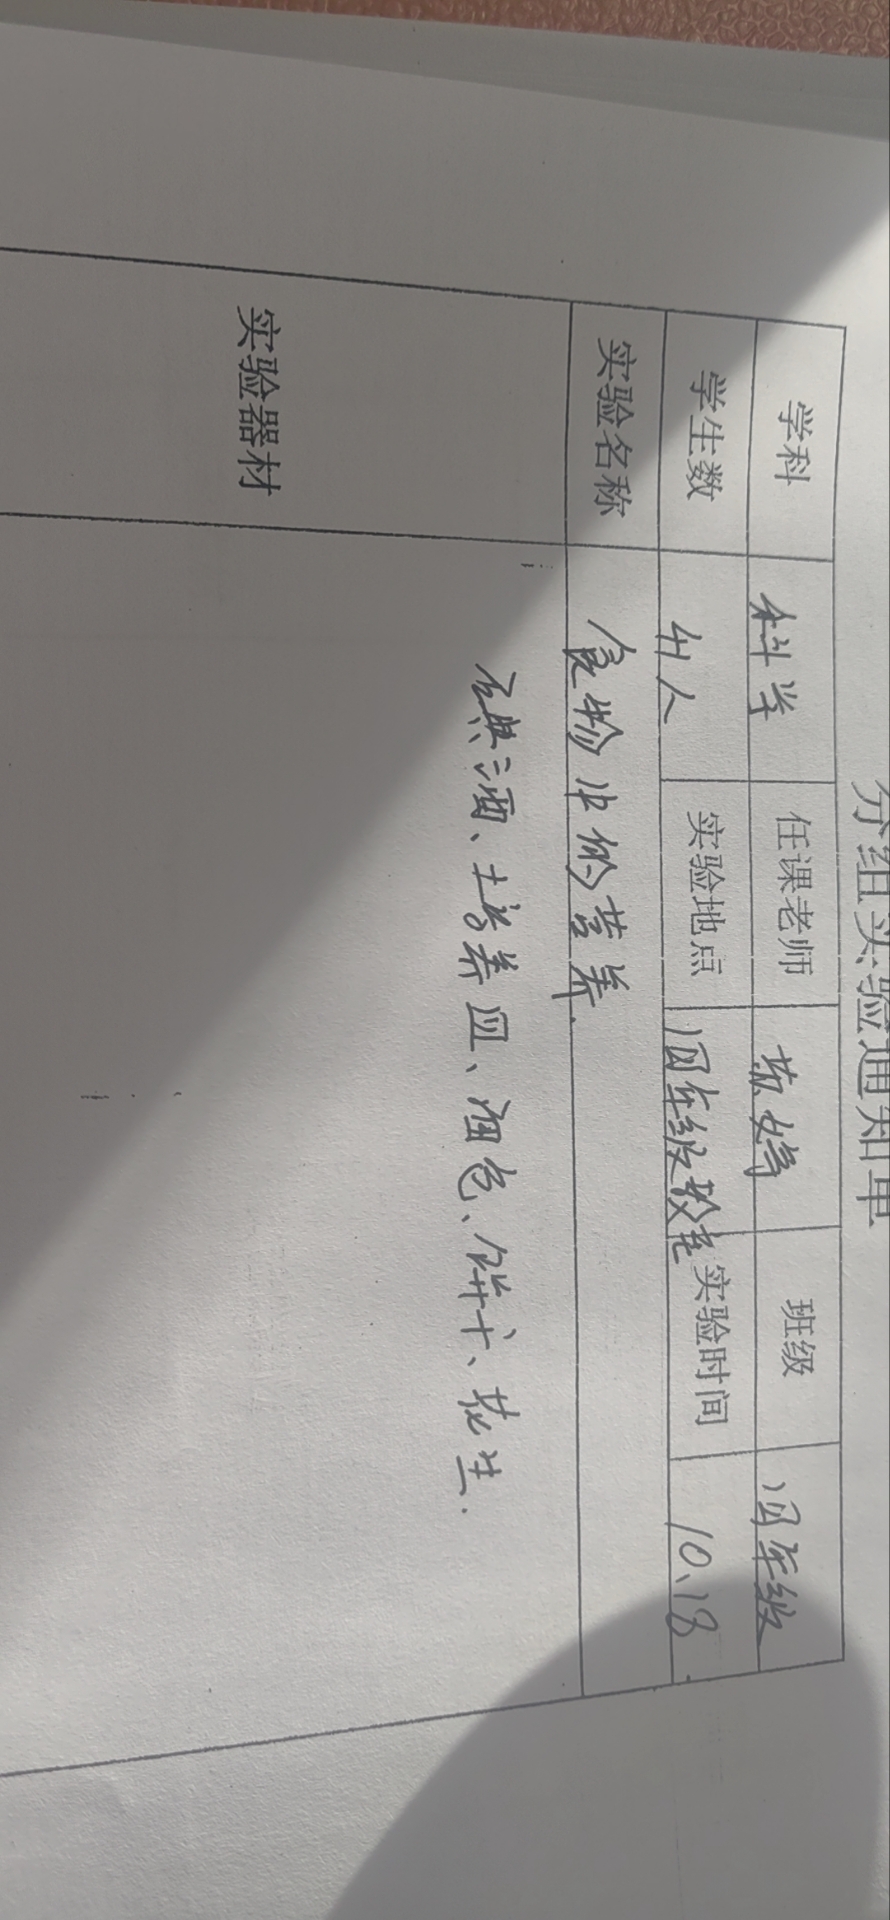 分组实验通知单
学科 科学 任课老师 苏婷 班级 四年级
学生数 41人 实验地点 四年级教室 实验时间 10.18.
实验名称 食物中的营养.
实验器材 碘酒、培养皿、面包、饼干、花生.